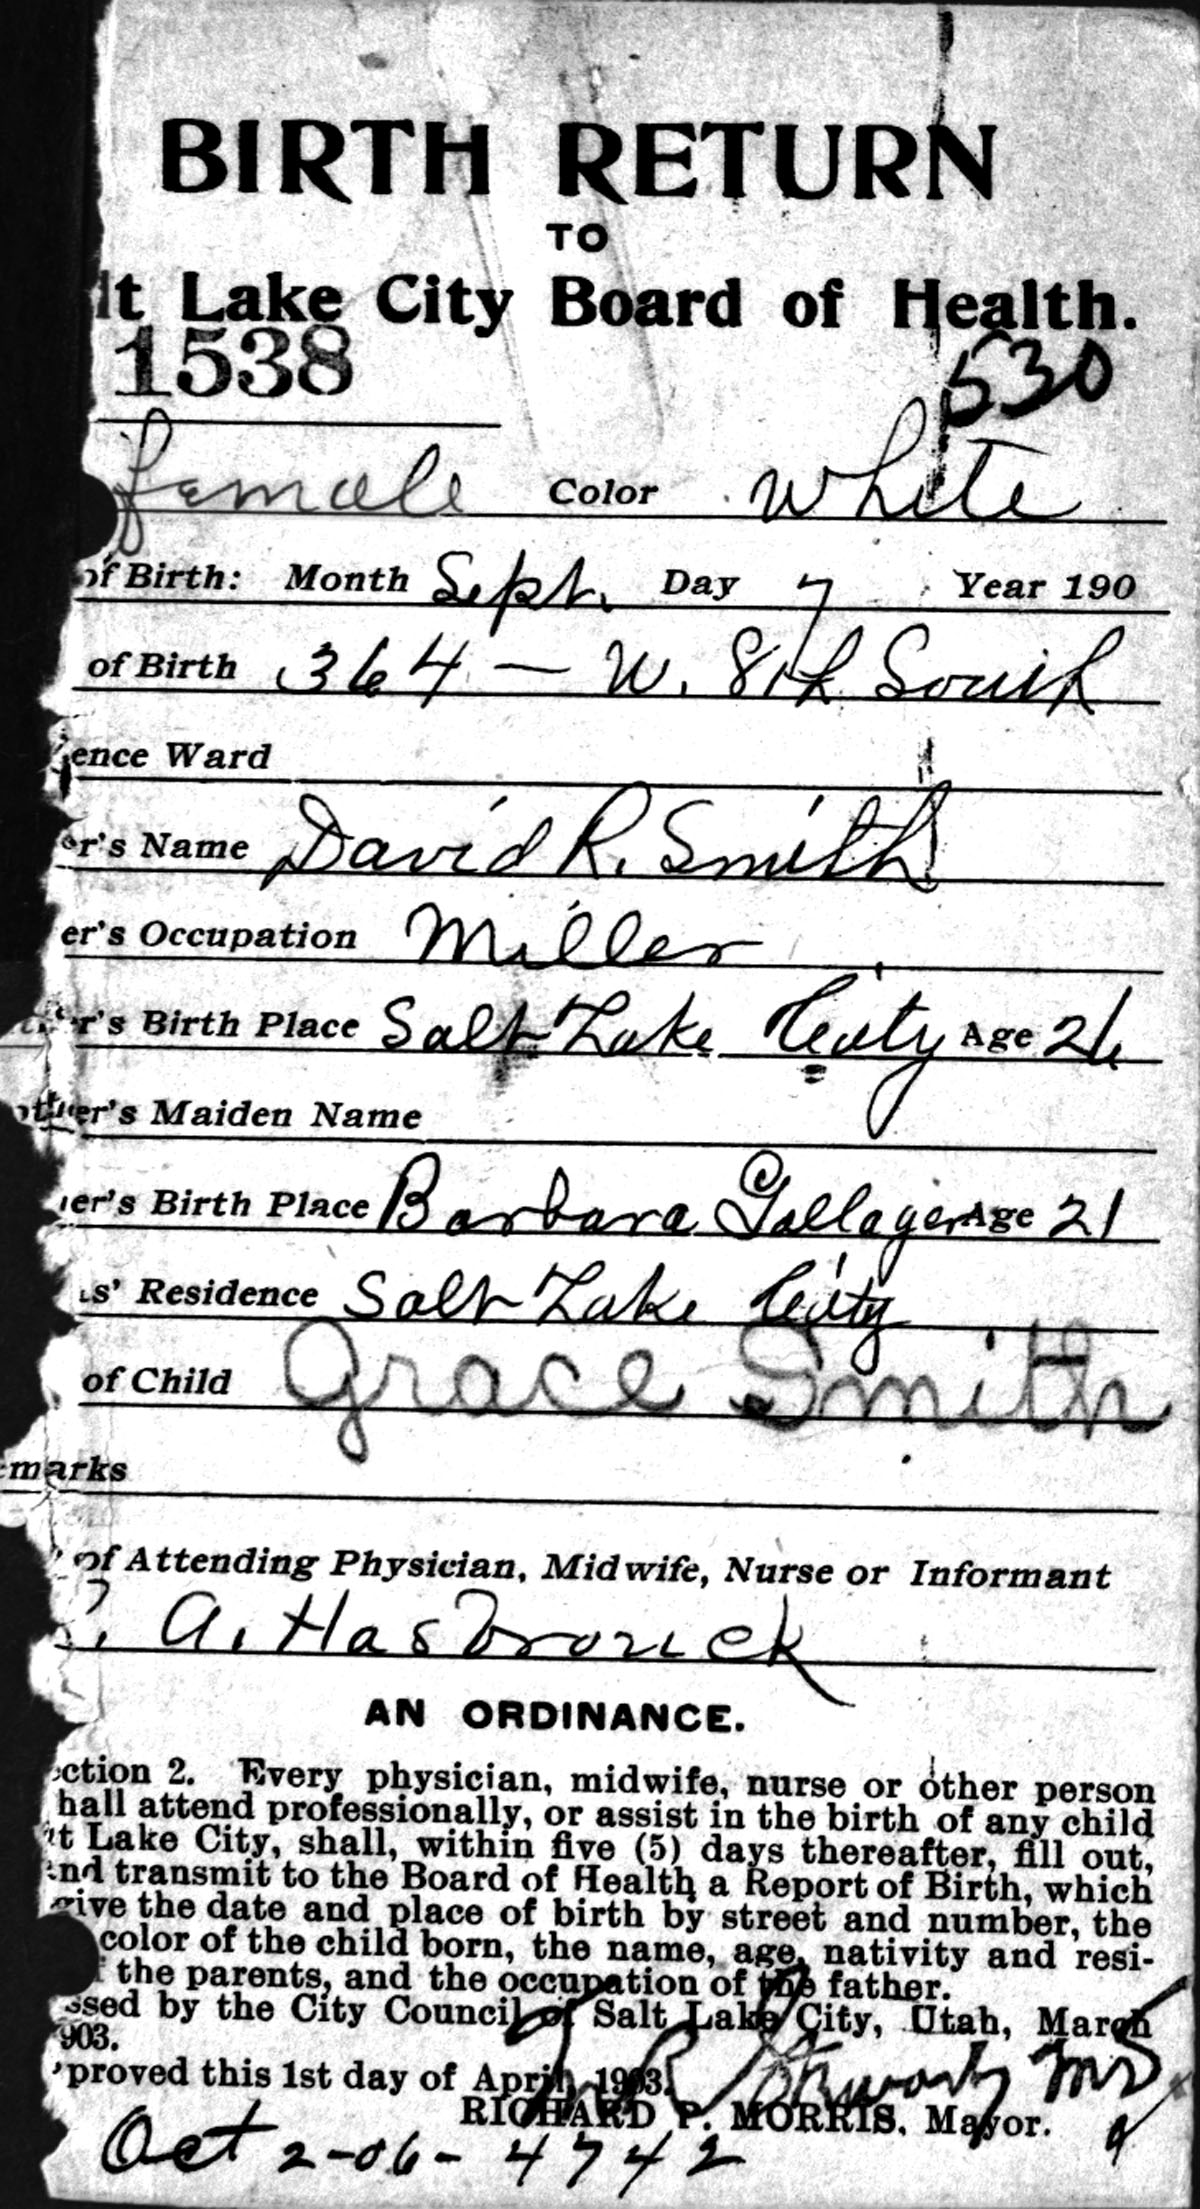 BIRTH RETURN
TO
lt Lake City Board of Health.
1538
530
female Color white
of Birth: Month Sept. Day 7 Year 190
of Birth 364 - W. 8th South
ence Ward
er's Name David R. Smith
er's Occupation Miller
er's Birth Place Salt Lake City Age 26
other's Maiden Name
er's Birth Place Barbara Gallager Age 21
s' Residence Salt Lake City
of Child Grace Smith
marks
of Attending Physician, Midwife, Nurse or Informant
A. Hasbrouck
AN ORDINANCE.
ction 2. Every physician, midwife, nurse or other person
hall attend professionally, or assist in the birth of any child
lt Lake City, shall, within five (5) days thereafter, fill out,
and transmit to the Board of Health a Report of Birth, which
give the date and place of birth by street and number, the
color of the child born, the name, age, nativity and resi-
the parents, and the occupation of the father.
ssed by the City Council of Salt Lake City, Utah, March
903.
proved this 1st day of April, 1903.
RICHARD P. MORRIS, Mayor.
Oct 2-06- 4742